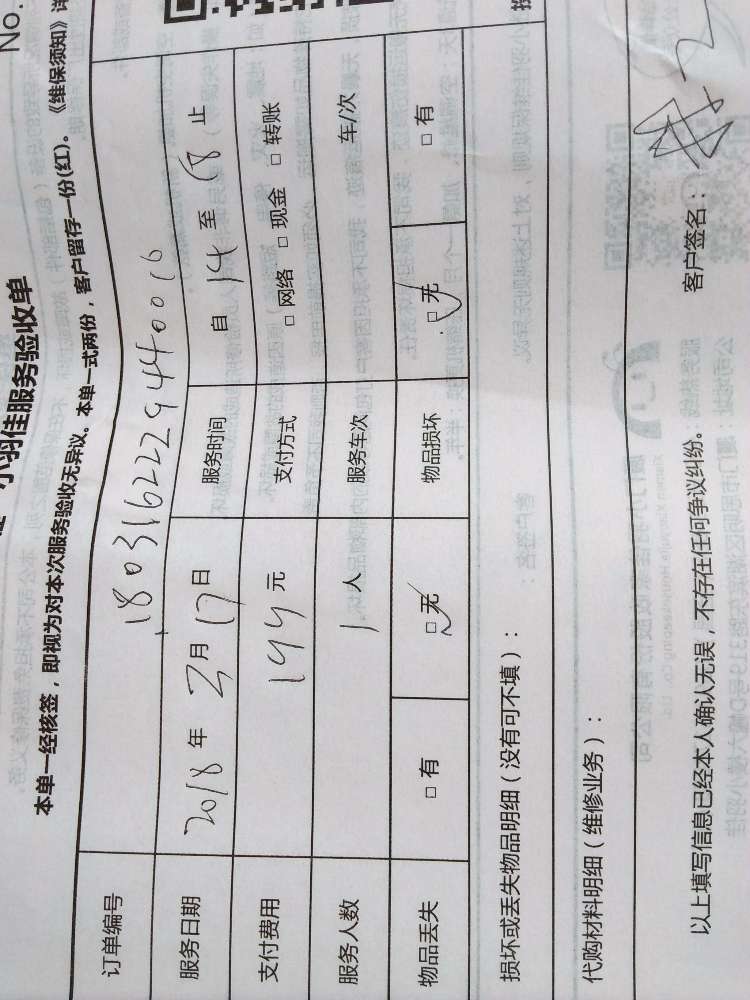 No.
小羽佳服务验收单
本单一经核签，即视为对本次服务验收无异议。本单一式两份，客户留存一份(红)。《维保须知》详
订单编号 18031622294440016
服务日期 2018年3月17日 服务时间 自14至18止
支付费用 199元 支付方式 □网络 □现金 □转账
服务人数 1人 服务车次 车/次
物品丢失 □有 □无 物品损坏 □无 □有
损坏或丢失物品明细（没有可不填）：
代购材料明细（维修业务）：
以上填写信息已经本人确认无误，不存在任何争议纠纷。 客户签名：